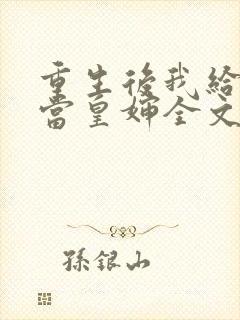 重生後我給
當皇婶全文
孫銀山